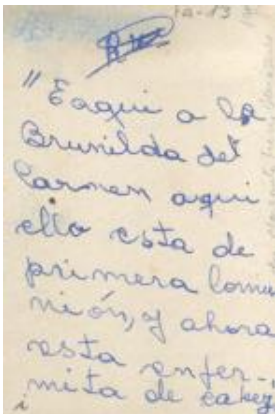 "Eaqui a la
Brunilda del
Carmen aqui
ella esta de
primera Comu
nión, y ahora
esta enfer-
mita de